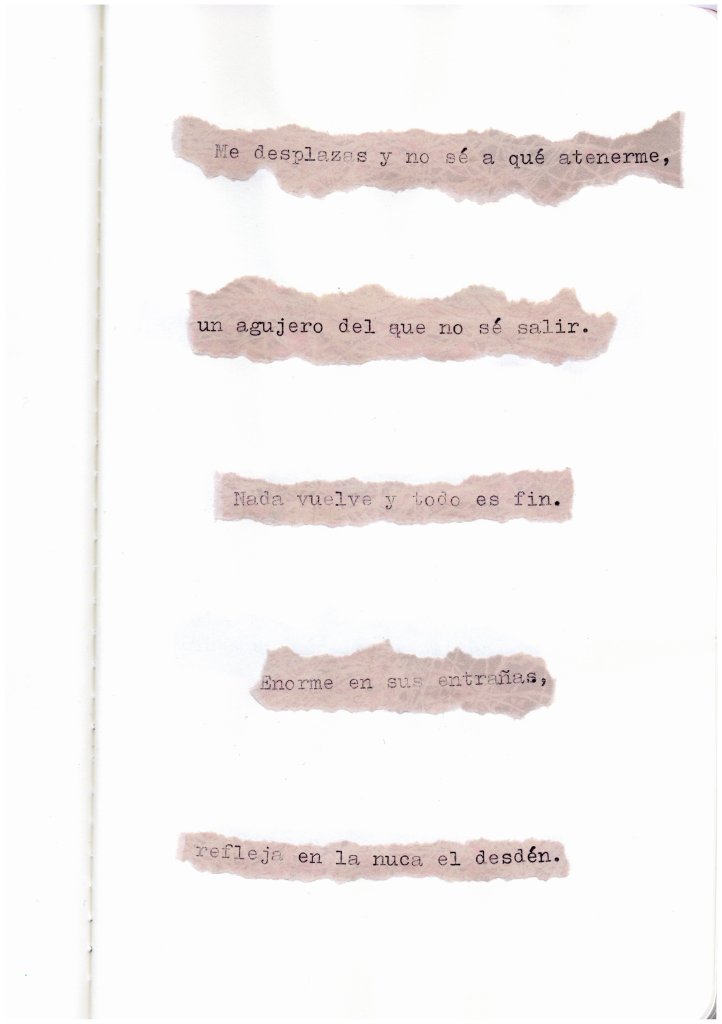 Me desplazas y no sé a qué atenerme,
un agujero del que no sé salir.
Nada vuelve y todo es fin.
Enorme en sus entrañas,
refleja en la nuca el desdén.